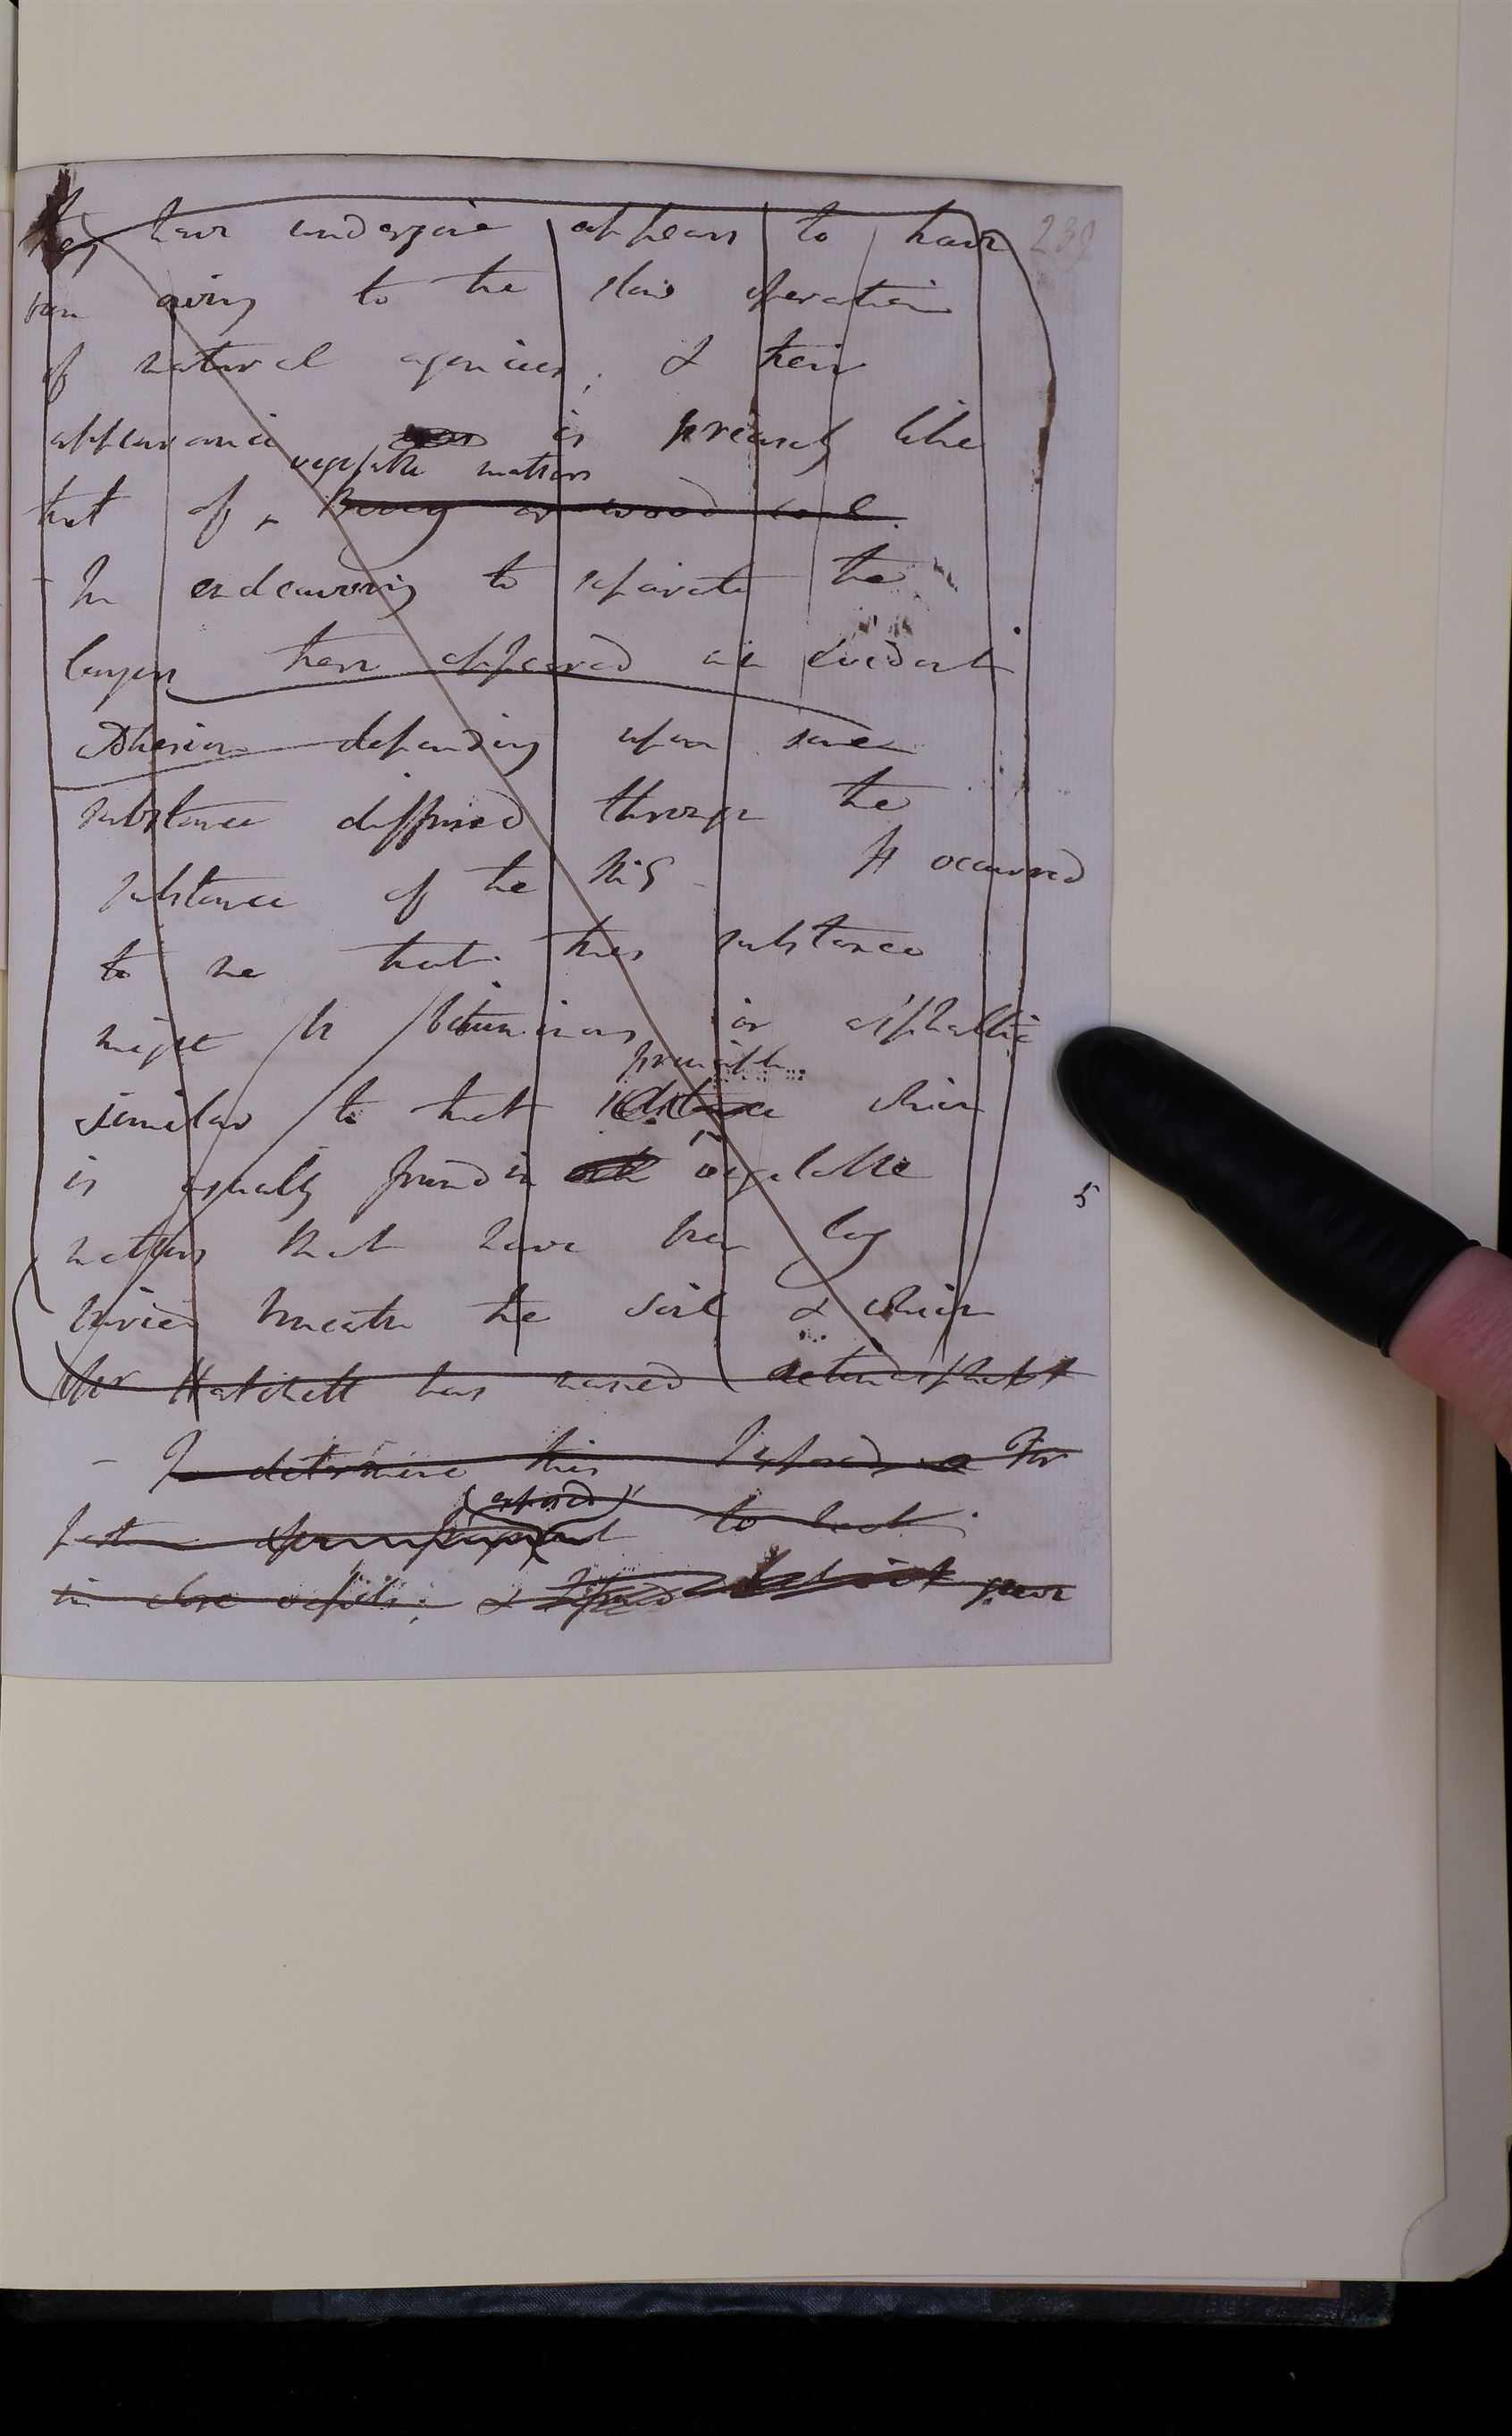 they have undergone appears to have 239
been owing to the slow operation
of natural agencies; & their
appearance is precisely like
vegetable matters
that of Bovey or wood coal.
- In endeavoring to separate the
layers there appeared an evident
Adhesion depending upon some
substance diffused through the
substance of the MS - It occurred
to me that this substance
might be bituminous or asphaltic
principle
similar to that substance which
is usually found in vegetable
5
matters that have been long
buried beneath the soil & which
Mr Hatchett has named retinasphalt
- To determine this I exposed a For
(exposed)
to heat
in close vessels; & gave